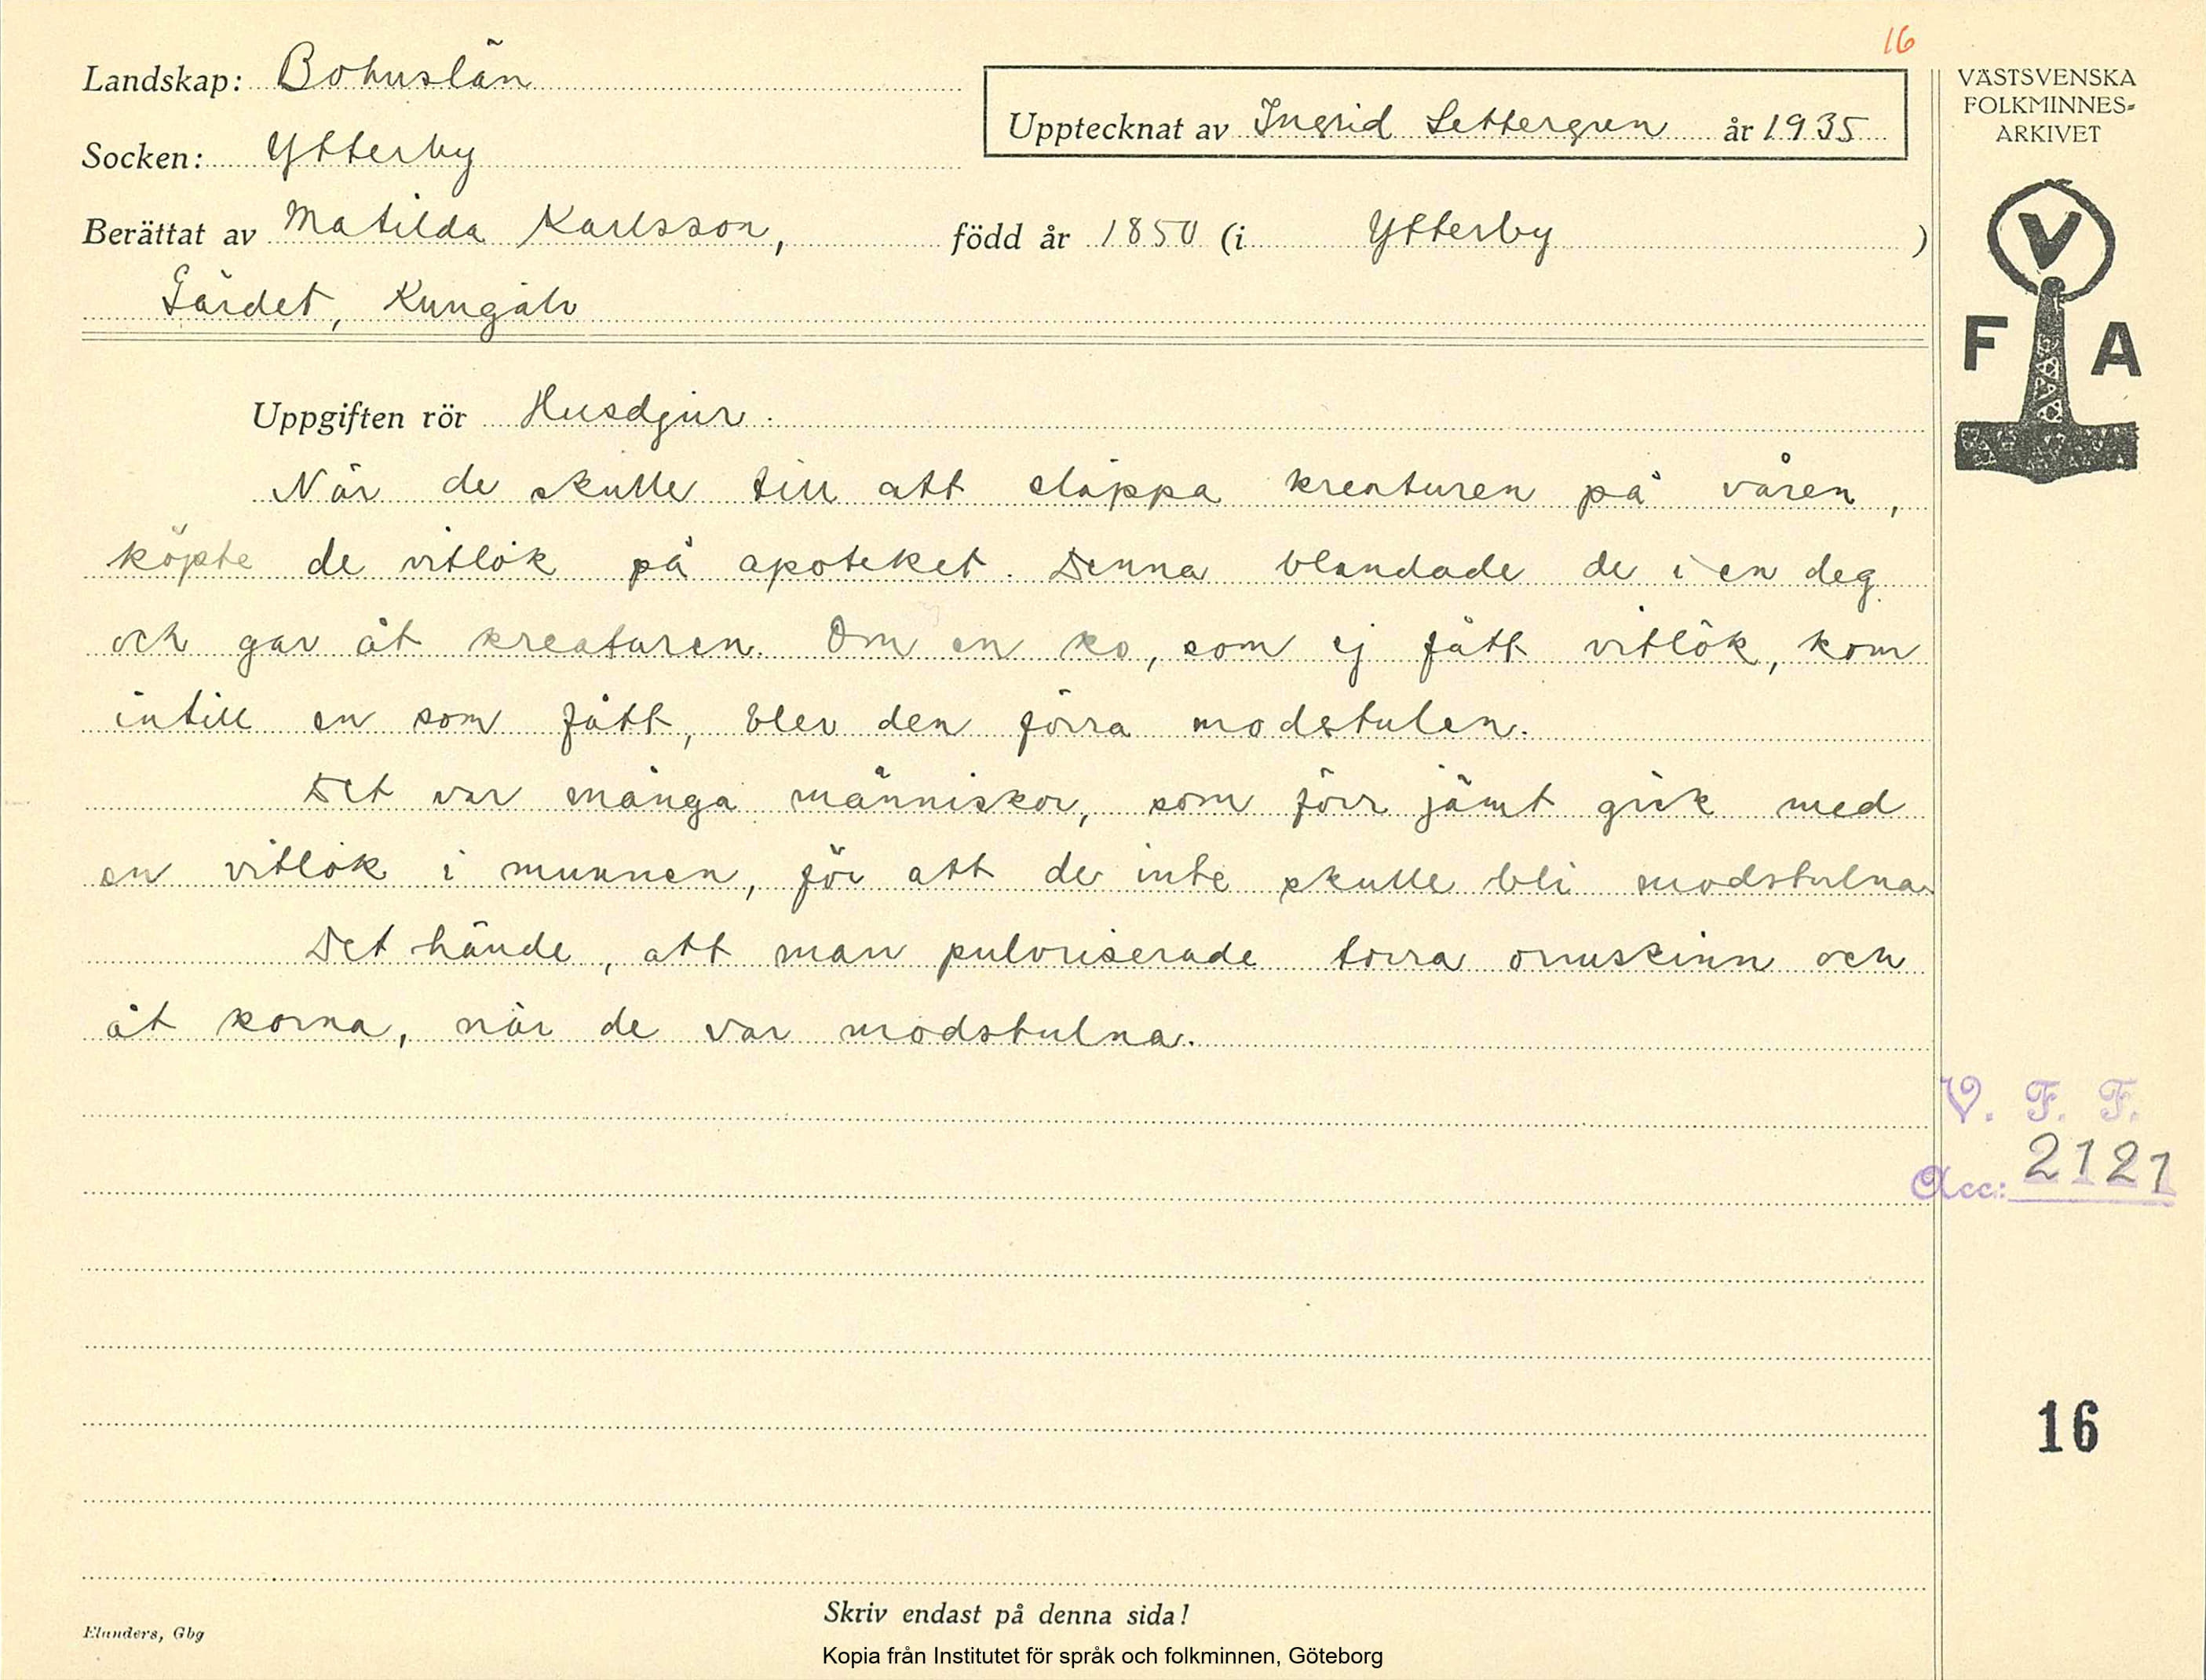 16
Landskap: Bohuslän
Upptecknat av Ingrid Settergren år 1935
VÄSTSVENSKA
FOLKMINNES-
ARKIVET
Socken: Ytterby
Berättat av Matilda Karlsson, född år 1850 (i Ytterby )
Gärdet, Kungälv
V
F A
Uppgiften rör Husdjur.
När de skulle till att släppa kreaturen på våren,
köpte de vitlök på apoteket. Denna blandade de i en deg
och gav åt kreaturen. Om en ko, som ej fått vitlök, kom
intill en som fått, blev den förra modstulen.
Det var många människor, som förr jämt gick med
en vitlök i munnen, för att de inte skulle bli modstulna.
Det hände, att man pulvriserade torra ormskinn och
åt korna, när de var modstulna.
V. F. F.
Acc: 2121
16
Skriv endast på denna sida!
Elanders, Gbg
Kopia från Institutet för språk och folkminnen, Göteborg